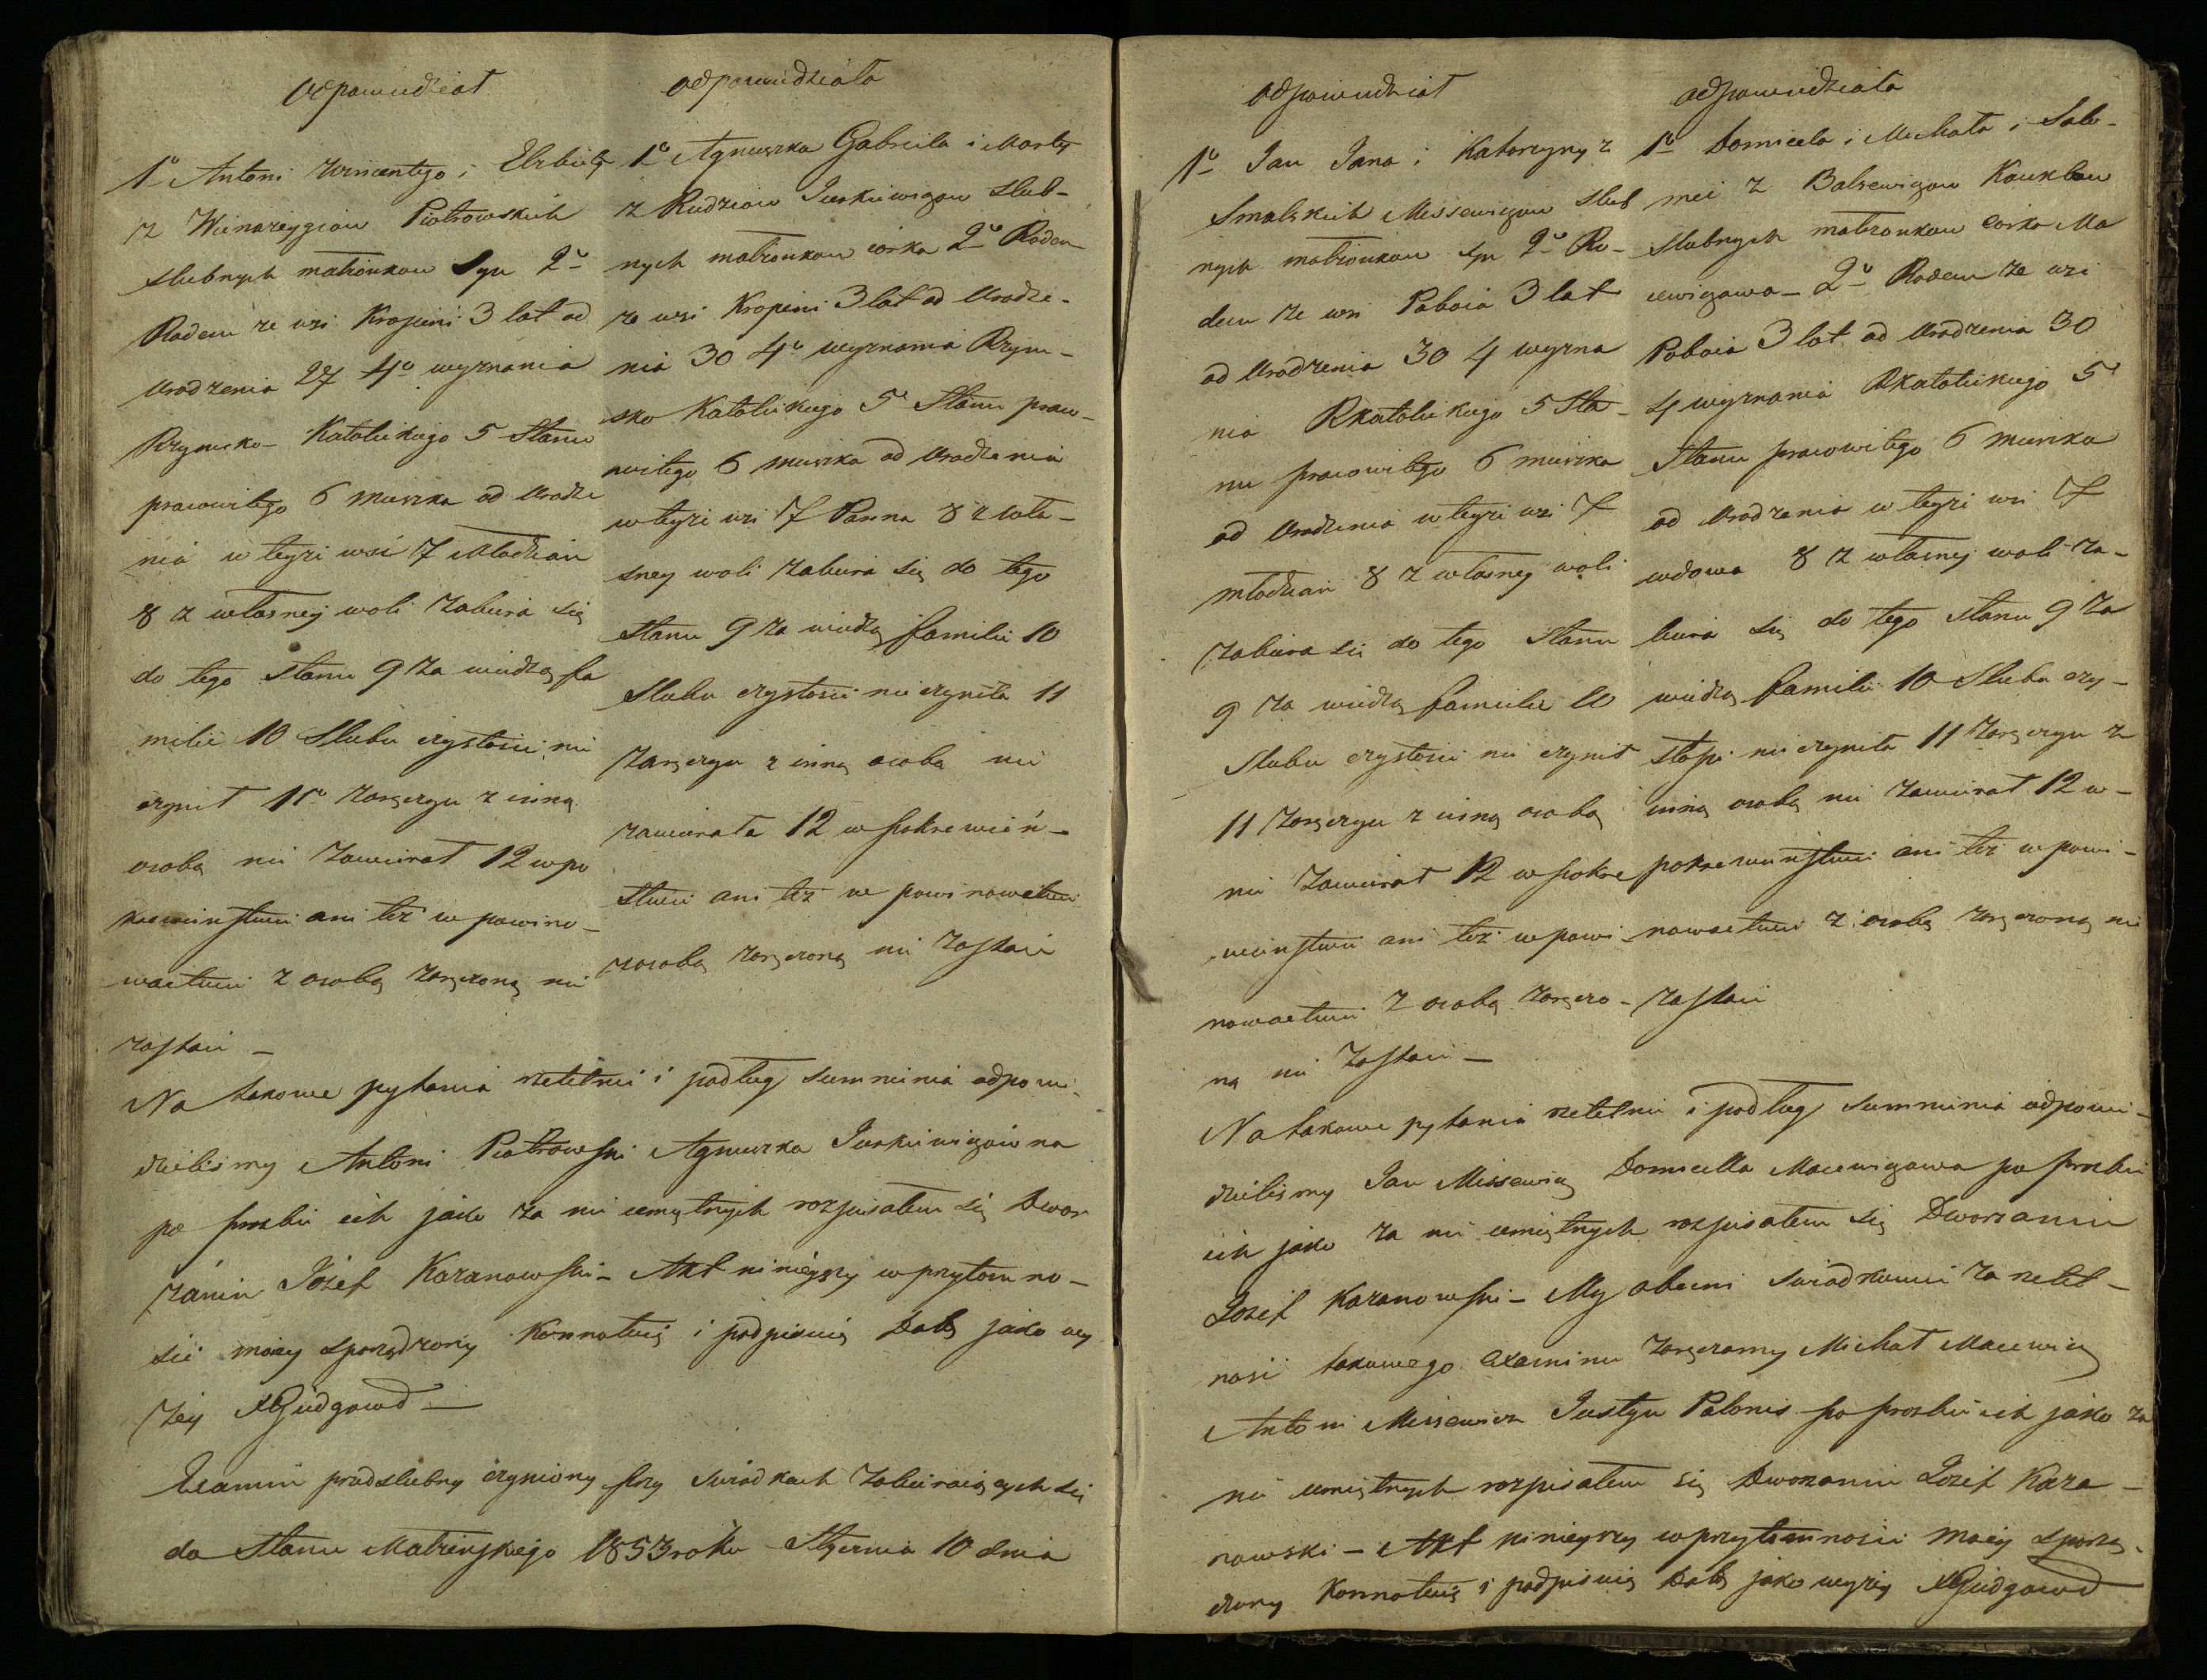 odpowiedział
1o Antoni Wincentego i Elżbiety
z Winarzyggiow Piotrowskich
slubnych małżonkow Syn 2o
Rodem ze wsi Kropini 3 lat od
Urodzenia 27 4o wyznania
Rzymsko- Katolickiego 5 Stanu
pracowitego 6 mieszka od Urodze
nia w teyże wsi 7 Młodzian
8 z własney woli zabiera się
do tego stanu 9 za wiedzą fa
milii 10 Slubu czystosci nie
czynił 11o zaręczyn z inną
osobą nie zawierał 12 w po
krewinstwie ani też w powino-
wactwie z osobą zaręczoną nie
zostaie _
odpowiedziała
1o Agnieszka Gabriela i Marty
z Rudziow Juskiewiczow slub-
nych małżonkow córka 2o Rodem
ze wsi Kropini 3 lat od Urodze-
nia 30 4o wyznania Rzym-
sko Katolickiego 5o Stanu praco-
witego 6 mieszka od Urodzenia
w teyże wsi 7 Panna 8 z włta-
sney woli zabiera się do tego
Stanu 9 za wiedzą familii 10
Slubu czystosci nie czyniła 11
zaręczyn z inną osobą nie
zawierała 12 w pokrewień-
stwie ani też w powinowatwie
z osobą zaręczoną nie zostaie
Na takowe pytania rzetelnie i podług sumnienia odpowie-
dzielismy Antoni Piotrowski Agnieszka Juskiewiczowna
po prozbie ich jako za nie umiętnych rozpisałem się Dwor
zanin Józef Karanowski _ Akt ninieyszy w przytomno-
sci moiey sporządzony Konnotuię i podpisuię Datą jako wy
żey X Gudgowd _
Examin przedslubny czyniony przy swiadkach zabieraiących się
do Stanu Małżeńskiego 1853 roku Stycznia 10 dnia
odpowiedział
1o Jan Jana i Katarzyny z
Smalskich Missewiczow Slub
nych małżonkow syn 2o Ro-
dem ze wsi Paboia 3 lat
od Urodzenia 30 4 wyzna
nia RKatolickiego 5 Sta-
nu pracowitego 6 mieszka
od Urodzenia w teyże wsi 7
młodzian 8 z własney woli
zabiera się do tego Stanu
9 za wiedzą familii 10
Slubu czystosci nie czynił
11 zaręczyn z inną osobą
nie zawierał 12 w pokre
winstwie ani też w powi-
nowactwie z osobą zaręczo-
ną nie zostaie _
odpowiedziała
1o Domicela i Michała i Salo-
mei z Balsewiczow Kauklow
slubnych małżonkow corka Ma
cewiczowa _ 2o Rodem ze wsi
Paboia 3 lat od Urodzenia 30
4 wyznania RKatolickiego 5o
Stanu pracowitego 6 mieszka
od Urodzenia w teyże wsi 7
wdowa 8 z własney woli za-
biera się do tego stanu 9 za
wiedzą familii 10 Slubu czy-
stosci nie czyniła 11 zaręczyn z
inną osobą nie zawierał 12 w-
pokrewinstwie ani też w powi-
nowactwie z osobą zaręczoną nie
zostaie
Na takowe pytania rzetelnie i podług sumnienia odpowie-
dzielismy Jan Missewicz Domicella Macewiczowa po prozbie
ich jako za nie umiętnych rozpisałem się Dworzanin
Jozef Karanowski _ My obecni swiadkowie za rzetel-
nosć takowego Examinu zaręczamy Michał Macewicz
Antoni Missewicz Justyn Palonis po prozbie ich jako za
nie umiętnych rozpisałem się Dworzanin Jozef Kara-
nowski _ Akt ninieyszy w przytomnosci moiey sporzą-
dzony Konnotuię i podpisuię Datą jako wyżey X Gudgowd